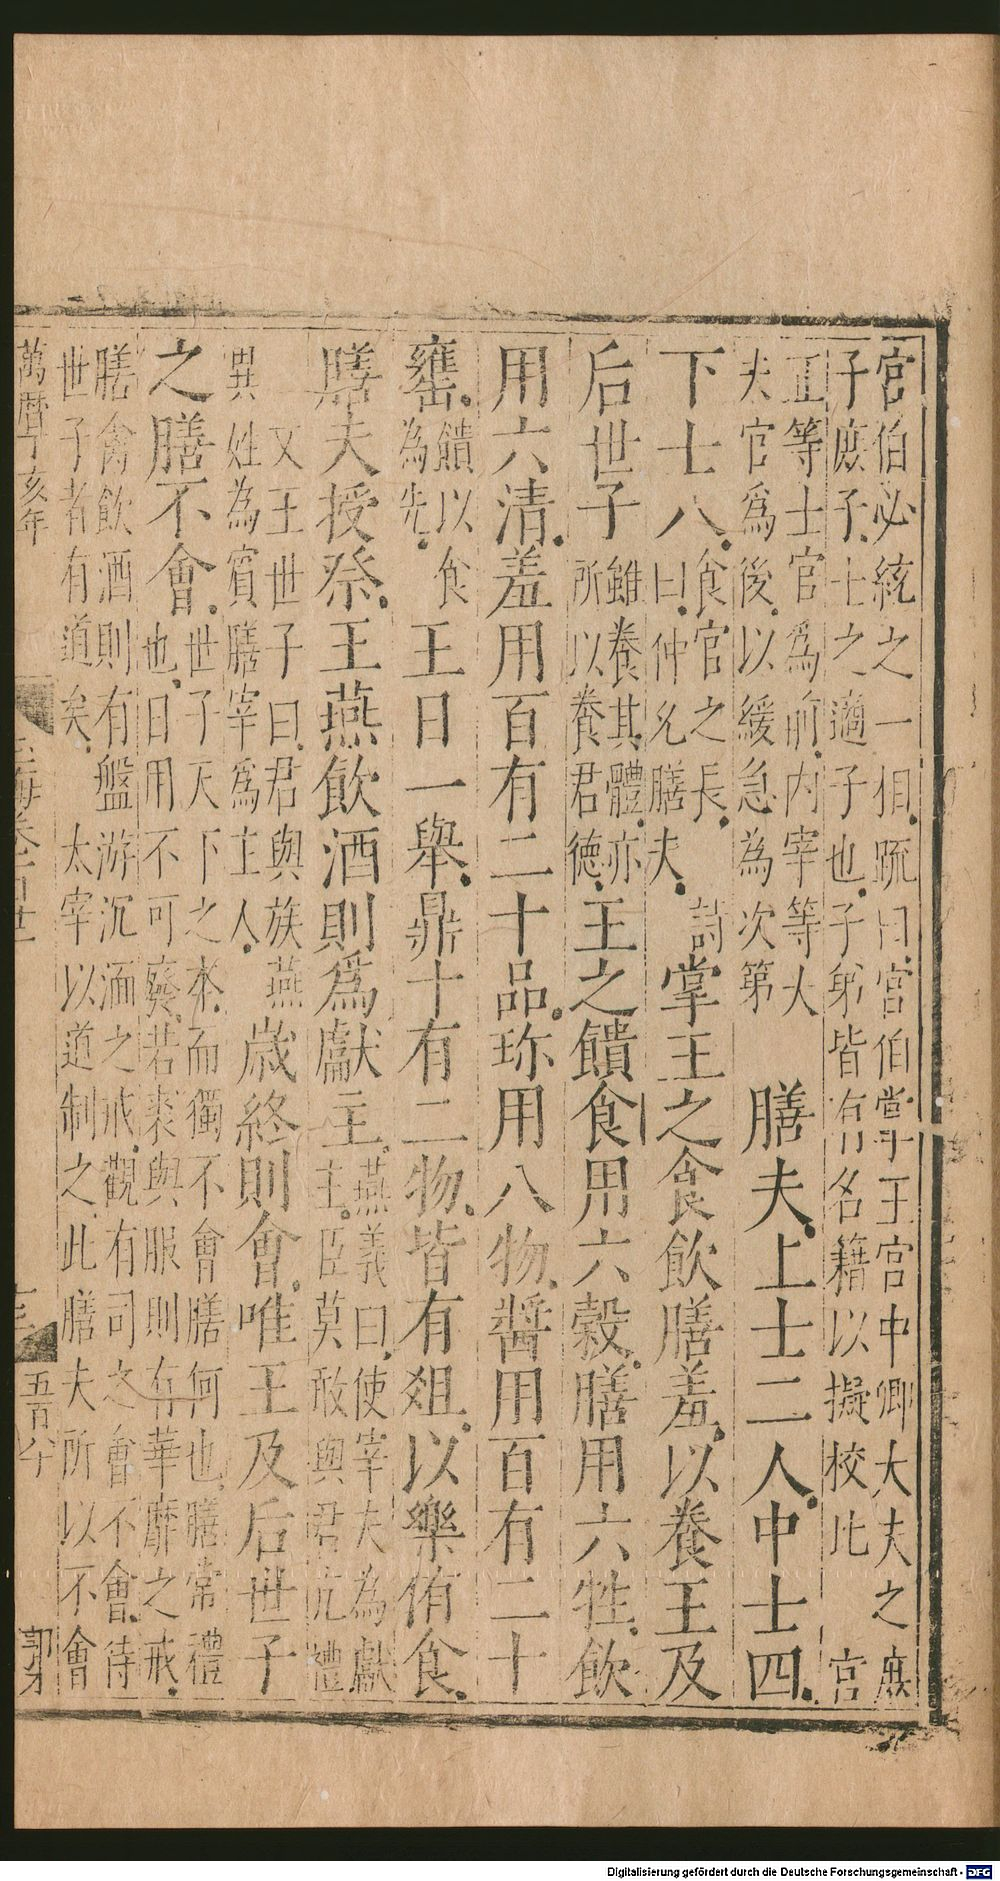 宮伯必統之一伯疏曰宮伯掌王宮中卿大夫之庶
子庶子士之適子也子弟皆有名籍以擬校比　宮
正等士官為前內宰等大
夫官爲後以緩急為次第
膳夫上士二人中士四
下士八
食官之長
曰仲允膳夫
詩
掌王之食飲膳羞以養王及
后世子
雖養其體亦
所以養君德
王之饋食用六穀膳用六牲飲
用六清羞用百有二十品珎用八物醬用百有二十
罋
饋以食
為先
王日一舉鼎十有二物皆有俎以樂侑食
膳夫授祭王燕飲酒則爲獻主
燕義曰使宰夫為獻
主臣莫敢與君亢禮
又王世子曰君與族燕
異姓為賓膳宰爲主人
歲終則會唯王及后世子
之膳不會
世子天下之本而獨不會膳何也膳常禮
也日用不可廢若裘與服則有華靡之戒
膳禽飲酒則有盤游沉湎之戒觀有司之會不會待
世子者有道矣　太宰以道制之此膳夫所以不會
萬曆丁亥年
玉海卷一百廿一
十三
郭才
Digitalisierung gefördert durch die Deutsche Forschungsgemeinschaft - DFG